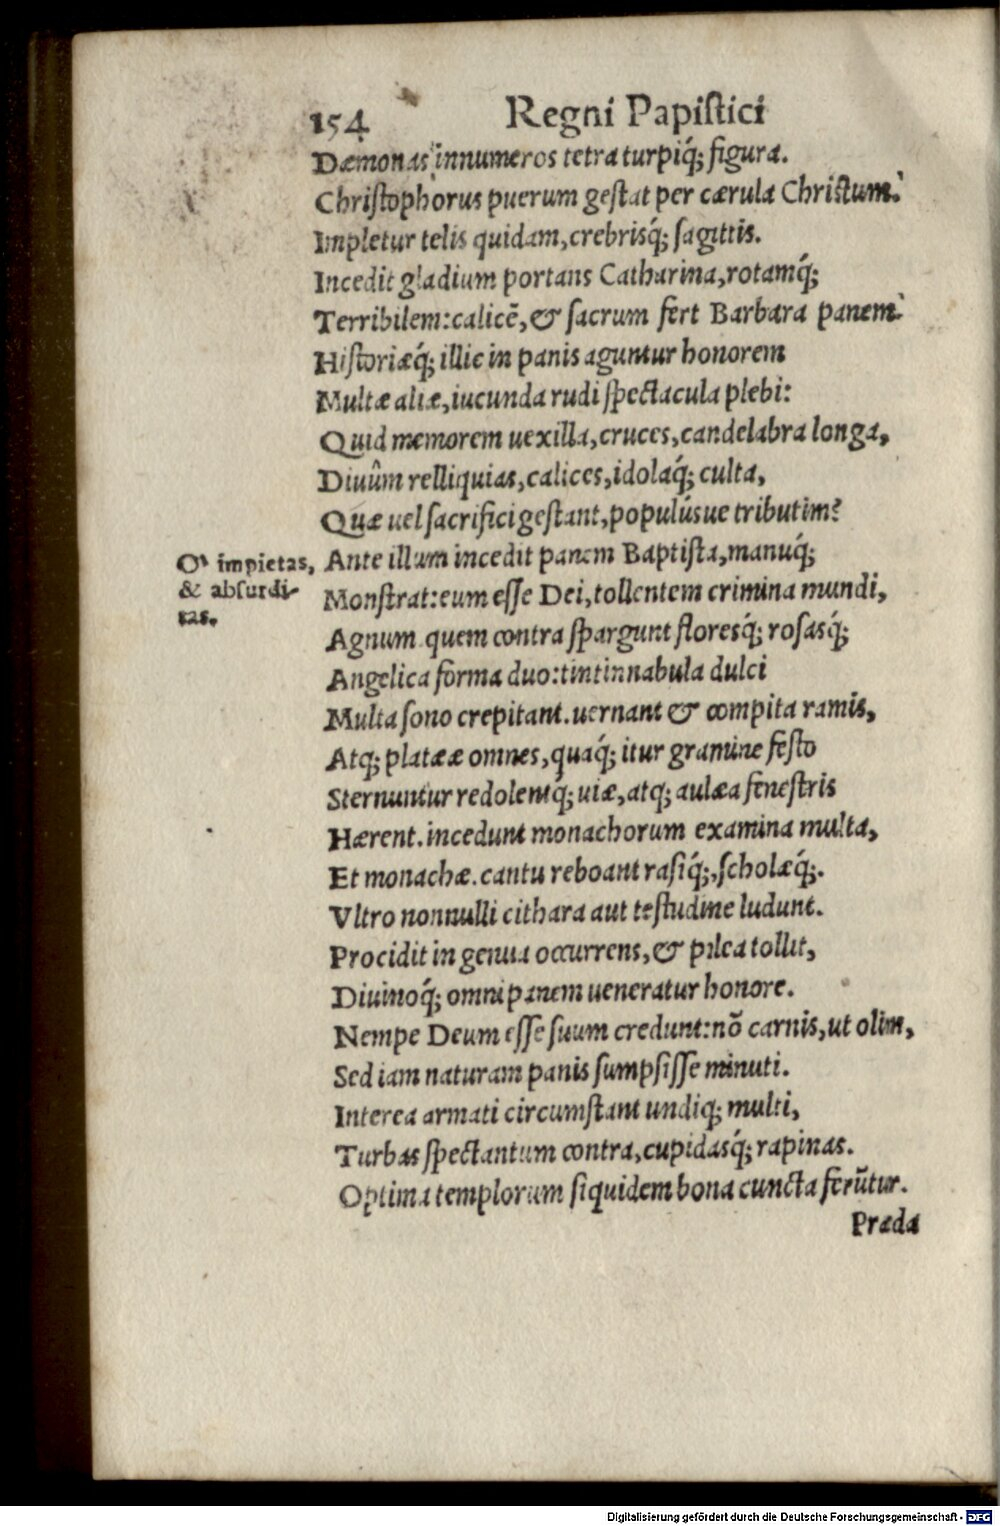 154 Regni Papiſtici
Dæmonas innumeros tetra turpiq́; figura.
Chriſtophorus puerum geſtat per cærula Chriſtum.
Impletur telis quidam, crebrisq́; ſagittis.
Incedit gladium portans Catharina, rotamq́;
Terribilem: calicẽ, & ſacrum fert Barbara panem.
Hiſtoriæq́; illic in panis aguntur honorem
Multæ aliæ, iucunda rudi ſpectacula plebi:
Quid memorem uexilla, cruces, candelabra longa,
Diuûm relliquias, calices, idolaq́; culta,
Quæ uel ſacrifici geſtant, populúsue tributim?
Ante illum incedit panem Baptiſta, manuq́;
O' impietas,
& abſurdi-
tas.
Monſtrat: eum eſſe Dei, tollentem crimina mundi,
Agnum quem contra ſpargunt floresq́; roſasq́;
Angelica forma duo: tintinnabula dulci
Multa ſono crepitant. uernant & compita ramis,
Atq; platææ omnes, quaq́; itur gramine feſto
Sternuntur redolentq́; uiæ, atq; aulæa feneſtris
Hærent. incedunt monachorum examina multa,
Et monachæ. cantu reboant raſiq́;, ſcholæq́;.
Vltro nonnulli cithara aut teſtudine ludunt.
Procidit in genua occurrens, & pilea tollit,
Diuinoq́; omni panem ueneratur honore.
Nempe Deum eſſe ſuum credunt: nõ carnis, ut olim,
Sed iam naturam panis ſumpſiſſe minuti.
Interea armati circumſtant undiq; multi,
Turbas ſpectantum contra, cupidasq́; rapinas.
Optima templorum ſiquidem bona cuncta ferũtur.
Præda
Digitalisierung gefördert durch die Deutsche Forschungsgemeinschaft - DFG